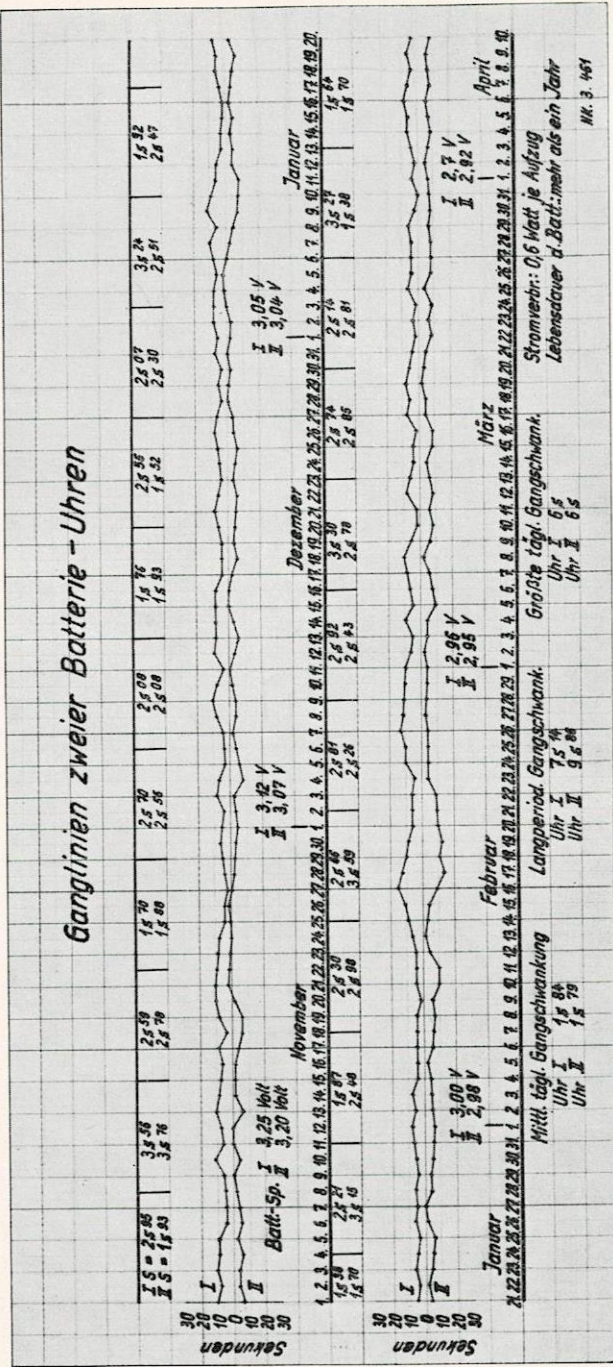 Ganglinien zweier Batterie-Uhren
I S = 2s95 3s56 2s59 1s70 2s70 2s08 1s76 2s56 2s07 3s24 1s92
II S = 1s93 3s76 2s70 1s88 2s56 2s08 1s93 1s52 2s30 2s51 2s47
Sekunden
30
20
10
0
10
20
30
I
II
Batt-Sp. I 3,25 Volt
II 3,20 Volt
I 3,12 V
II 3,07 V
I 3,05 V
II 3,04 V
November Dezember Januar
1. 2. 3. 4. 5. 6. 7. 8. 9. 10. 11. 12. 13. 14. 15. 16. 17. 18. 19. 20. 21. 22. 23. 24. 25. 26. 27. 28. 29. 30. 1. 2. 3. 4. 5. 6. 7. 8. 9. 10. 11. 12. 13. 14. 15. 16. 17. 18. 19. 20. 21. 22. 23. 24. 25. 26. 27. 28. 29. 30. 31. 1. 2. 3. 4. 5. 6. 7. 8. 9. 10. 11. 12. 13. 14. 15. 16. 17. 18. 19. 20.
1s38 2s21 1s87 2s30 2s66 2s81 2s92 3s30 2s74 2s14 3s27 1s64
1s70 3s15 2s48 2s98 3s59 2s26 2s43 2s70 2s86 2s81 1s38 1s70
Sekunden
30
20
10
0
10
20
30
I
II
I 3,00 V
II 2,98 V
I 2,96 V
II 2,95 V
I 2,7 V
II 2,92 V
Januar Februar März April
21. 22. 23. 24. 25. 26. 27. 28. 29. 30. 31. 1. 2. 3. 4. 5. 6. 7. 8. 9. 10. 11. 12. 13. 14. 15. 16. 17. 18. 19. 20. 21. 22. 23. 24. 25. 26. 27. 28. 29. 1. 2. 3. 4. 5. 6. 7. 8. 9. 10. 11. 12. 13. 14. 15. 16. 17. 18. 19. 20. 21. 22. 23. 24. 25. 26. 27. 28. 29. 30. 31. 1. 2. 3. 4. 5. 6. 7. 8. 9. 10.
Mittl. tägl. Gangschwankung
Uhr I 1s84
Uhr II 1s79
Langperiod. Gangschwank.
Uhr I 7s14
Uhr II 9s86
Größte tägl. Gangschwank.
Uhr I 6s
Uhr II 6s
Stromverbr.: 0,6 Watt je Aufzug
Lebensdauer d. Batt: mehr als ein Jahr
NK. 3. 461